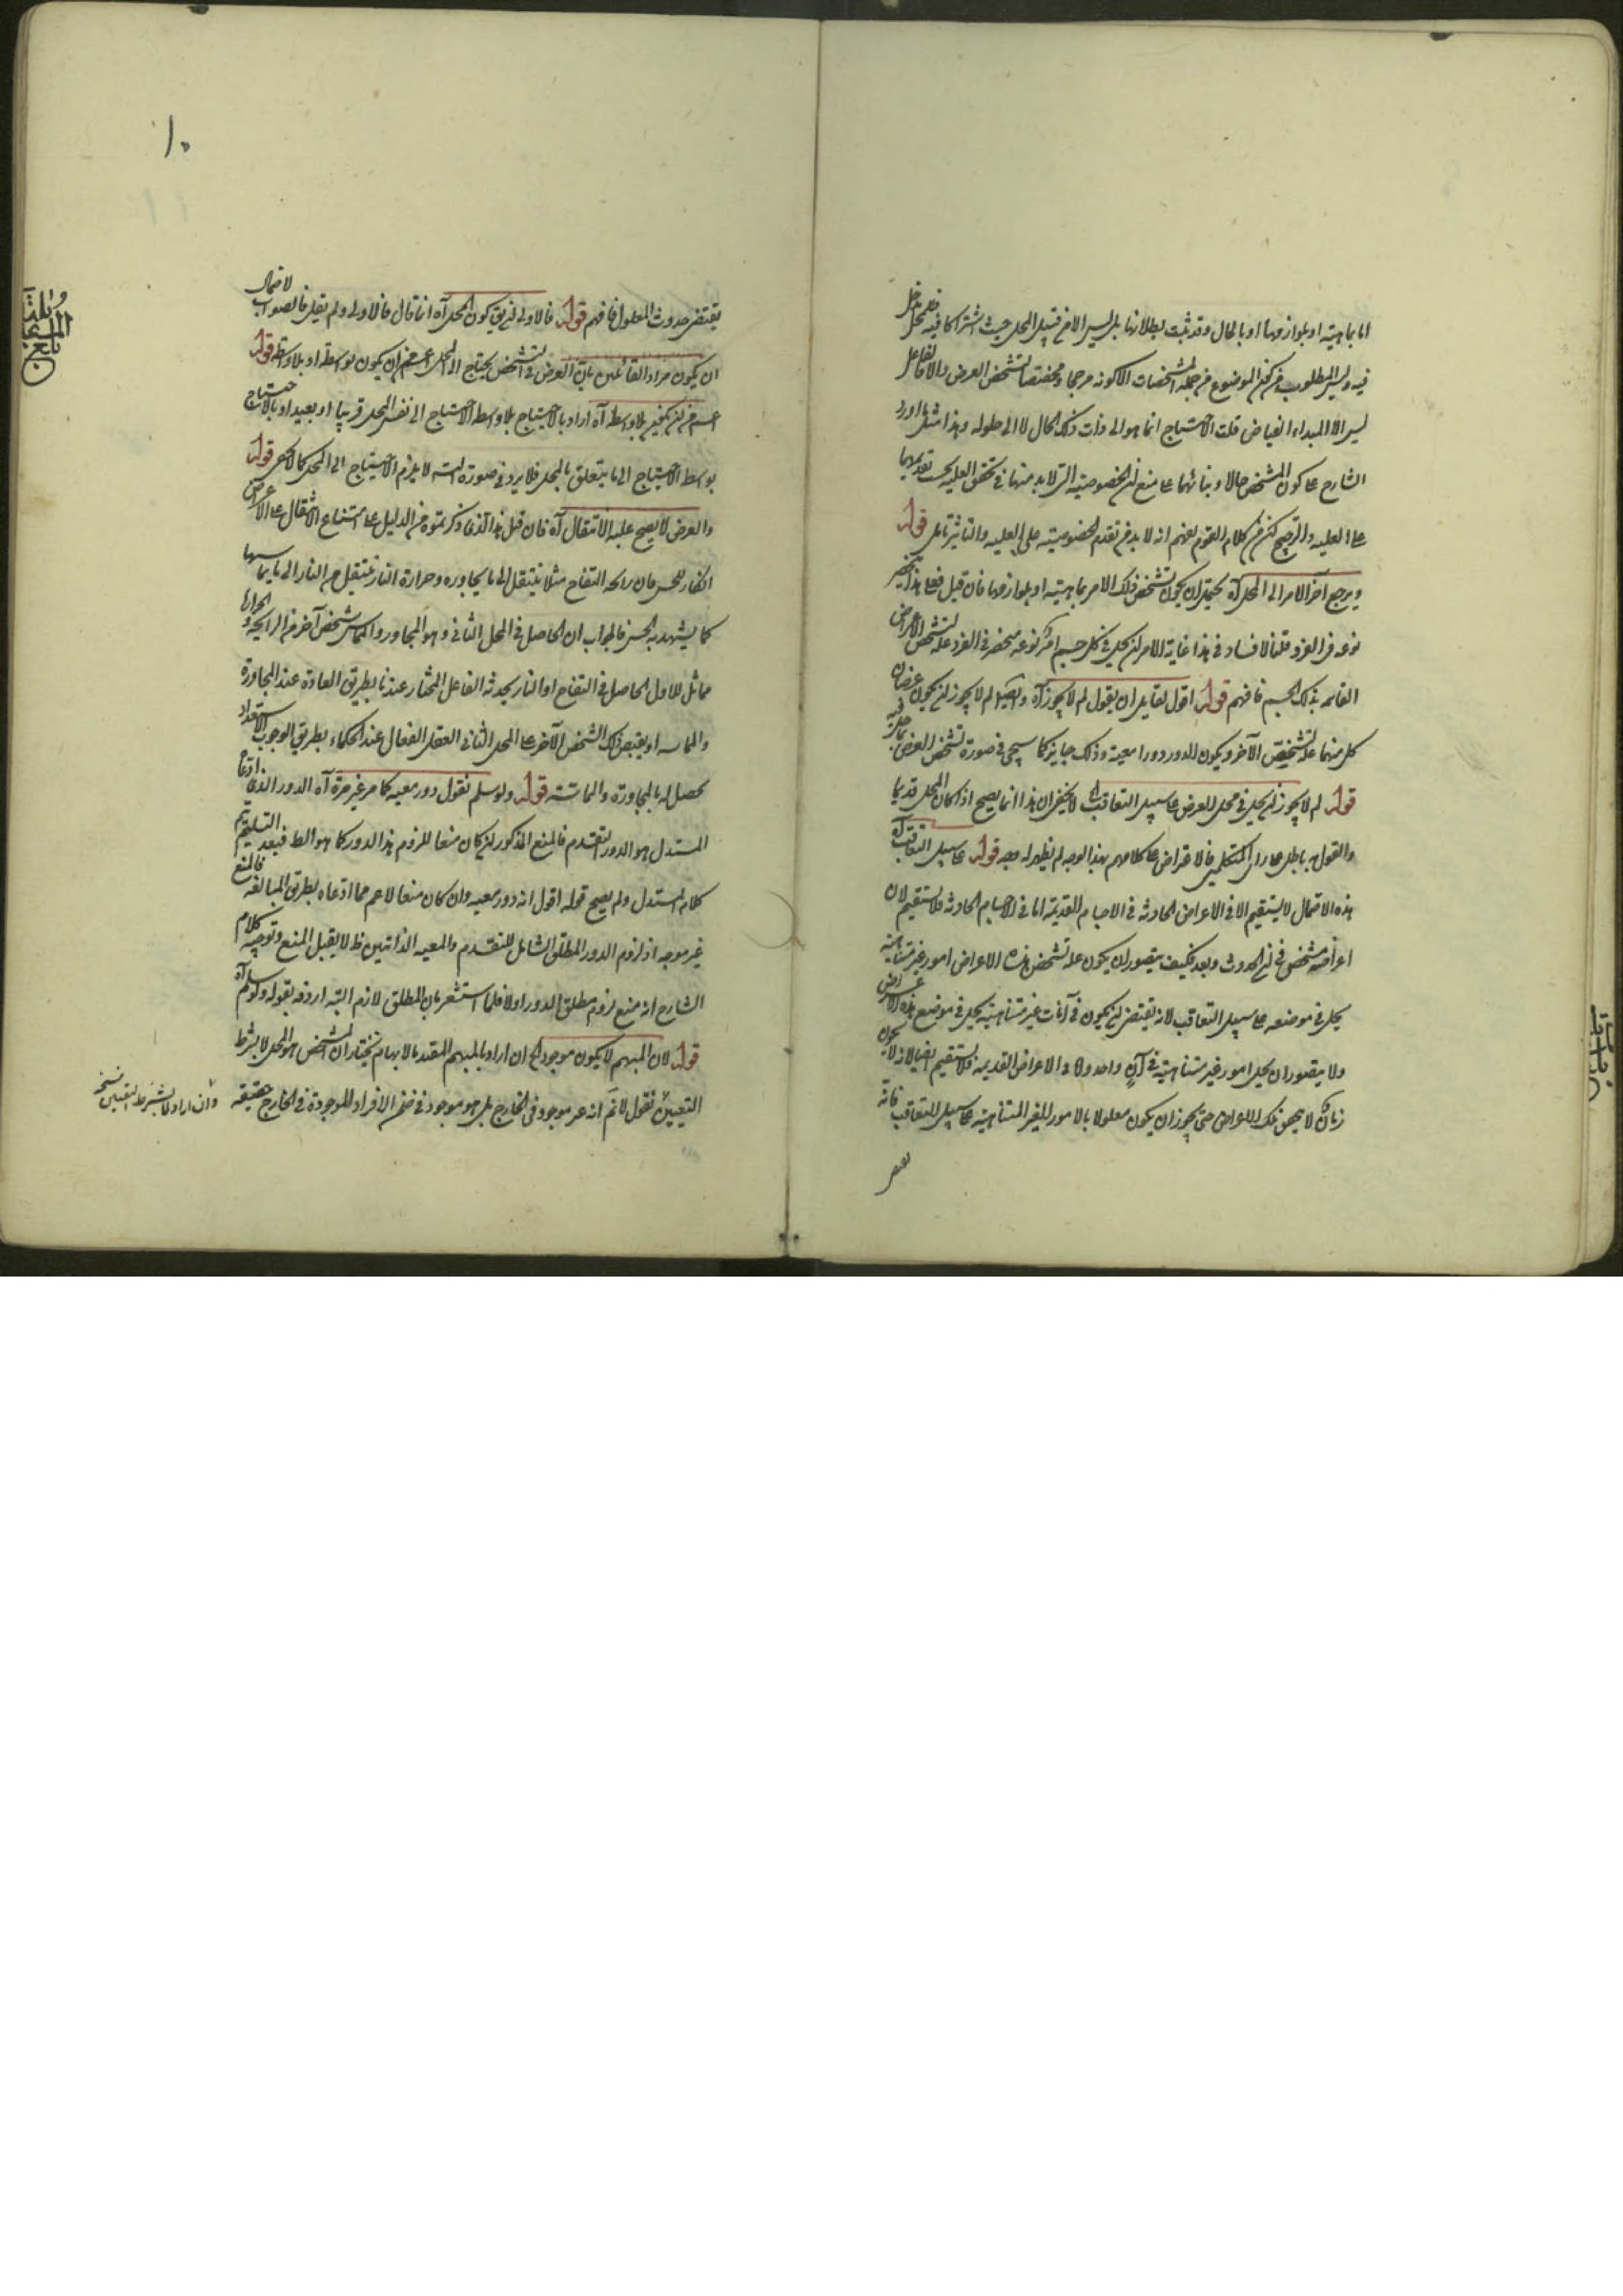 اما بماهيته او بلوازمها او بالحال وقد ثبت بطلانها بل ليس الا من قبيل المحل حيث اشتراكا فيه فللمحل دخل
فيه وليس المطلوب من كون الموضوع من جملة المشخصات الا كونه مرجحا ومخصصا لتشخص العرض والا فالفاعل
ليس الا المبداء الفياض قلت الاحتياج انما هو الى ذات ذلك الحال لا الى حلوله وهذا مثل ما اورد
الشارح على كون المشخص حالا وبنائهما على منع ان الخصوصية التى لا بد منها فى تحقق العلية يجب تقديمها
على العلية والترجيح لكن من كلام القوم يفهم انه لا بد من تقدم الخصوصية على العلية والتاثير تامل قوله
ويرجع آخر الامر الى المحل آه يحتمل ان يكون تشخص ذلك الامر بماهيته او بلوازمها فان قيل فعلى هذا ينحصر
نوعه فى الفرد قلنا لا فساد فى هذا غاية الامر ان يحل فى كل جسم امر نوعه منحصر فى الفرد علة لتشخص الاعراض
القائمة بذلك الجسم فافهم قوله اقول لقايل ان يقول لم لا يجوز آه وايضا لم لا يجوز ان يكون عرضان
كل منهما علة لتشخص الآخر ويكون الدور دورا معية وذلك جايز كما سيجئ فى صورة تشخص العرض بما حل فيه
قوله لم لا يجوز ان يحل فى محل العرض على سبيل التعاقب الخ لا يخفى ان هذا انما يصح اذا كان المحل قديما
والقول به باطل على راى المتكلمين فالاعتراض على كلامهم بهذا الوجه لم يظهر له وجه قوله على سبيل التعاقب آه
هذه الاحتمال لا يستقيم الا فى الاعراض الحادثة فى الاجسام القديمة اما فى الاجسام الحادثة فلا يستقيم لان
اعراضه مشخص فى آن الحدوث وبعد فكيف يتصور ان يكون علة تشخص هذه الاعراض امور غير متناهية
يحل فى موضعه على سبيل التعاقب لانه يقتضى ان يكون فى آنات غير متناهية يحل فى موضع هذه الاعراض
ولا يتصور ان يحل امور غير متناهية فى آن واحد ولا فى الاعراض القديمة فلا يستقيم ايضا لانه لا يكون
زمان لا يحصل تلك الاعراض حتى يجوز ان يكون معلولا بالامور الغير المتناهية على سبيل التعاقب فانه
يقتضى
١٠
يقتضى حدوث المعلول فافهم قوله فالاولى ان يق كون المحل آه انما قال فالاولى ولم يقل فالصواب لاحتمال
ان يكون مراد القائلين بان العرض فى التشخص يحتاج الى المحل اعم من ان يكون بواسطة او بلا واسطة قوله
اعم من ان يكون بلا واسطة آه اراد بالاحتياج بلا واسطة الاحتياج الى نفس المحل قريبا او بعيدا وبالاحتياج
بواسطة الاحتياج الى ما يتعلق بالمحل فلا يرد فى صورة لا يلزم الاحتياج الى المحل كما لا يخفى قوله
والعرض لا يصح عليه الانتقال آه فان قيل هذا الذى ذكرتموه من الدليل على امتناع الانتقال على الاعراض
انكار للحس فان رائحة التفاح مثلا ينتقل الى ما يجاوره وحرارة النار ينتقل من النار الى ما يماسها
كما يشهد به الحس فالجواب ان الحاصل فى المحل الثانى وهو المجاور والمماس شخص آخر من الرايحة والحرارة
مماثل للاول الحاصل فى التفاح او النار يحدثه الفاعل المختار عندنا بطريق العادة عند المجاورة
والمماسة او يفيض ذلك الشخص الآخر على المحل الثانى العقل الفعال عند الحكماء بطريق الوجوب لاستعداد
يحصل له بالمجاورة والمماسة قوله ولو سلم نقول دور معية كما مر غير مرة آه الدور الذى ادعاه
المستدل هو الدور التقدم فالمنع المذكور ان كان منعا للزوم هذا الدور كما هو الظ فبعد التسليم يتم
كلام المستدل ولم يصح قوله اقول انه دور معية وان كان منعا لاعم مما ادعاه بطريق المبالغة فالمنع
غير موجه اذ لزوم الدور المطلق الشامل للتقدم والمعية الذاتيين ظ لا يقبل المنع وتوجيه كلام
الشارح انه منع لزوم مطلق الدور اولا فلما استشعر بان المطلق لازم البتة اردفه بقوله ولو سلم آه
قوله لان المبهم لا يكون موجودا الخ ان اراد بالمبهم المقيد بالابهام نختار ان المشخص هو المحل لا بشرط
التعيين نقول لا نم انه غير موجود فى الخارج بل هو موجود فى ضمن الافراد الموجودة فى الخارج حقيقة
وان اراد لا بشرط التعيين نسخه